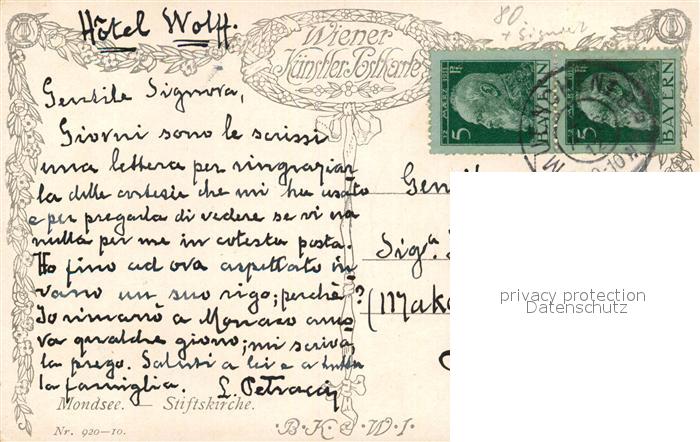 Hôtel Wolff.
80
+ Signiert
Wiener
Künstler Postkarte
Gentile Signora,
Giorni sono le scrissi
una lettera per ringraziar
la delle cortesie che mi ha usato
e per pregarla di vedere se vi era
nulla per me in cotesta posta.
Ho fino ad ora aspettato in
vano un suo rigo; perchè?
Io rimarrò a Monaco anco
ra qualche giorno; mi scriva,
la prego. Saluti a lei e a tutta
la famiglia. L. Petracchi
Mondsee. — Stiftskirche.
Nr. 920—10.
·B·K·W·I·
5 Pf. 12 MÄRZ 1911 BAYERN
5 Pf. 12 MÄRZ 1911 BAYERN
MÜNCHEN
Gen
Sig.a
(Mako
privacy protection
Datenschutz